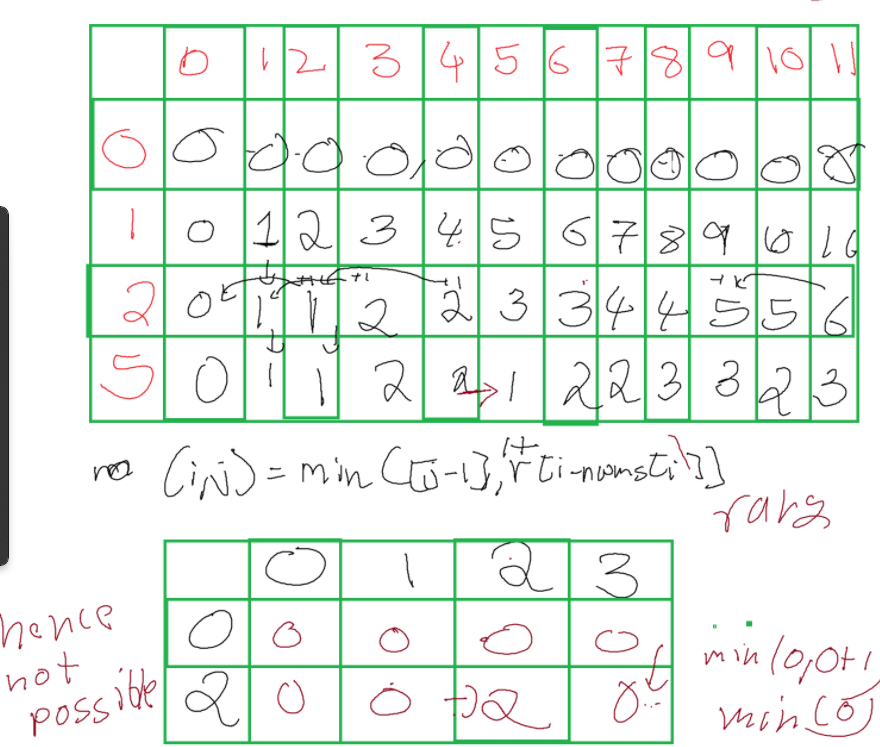 0 1 2 3 4 5 6 7 8 9 10 11
0 0 0 0 0 0 0 0 0 0 0 0 0
1 0 1 2 3 4 5 6 7 8 9 10 11
2 0 1 1 2 2 3 3 4 4 5 5 6
5 0 1 1 2 2 1 2 2 3 3 2 3
(i,j) = min ([j-1], 1+ r[i-nums[i]]
0 1 2 3
0 0 0 0 0
2 0 0 2 0
hence
not
possible
min(0,0+1
min(0)